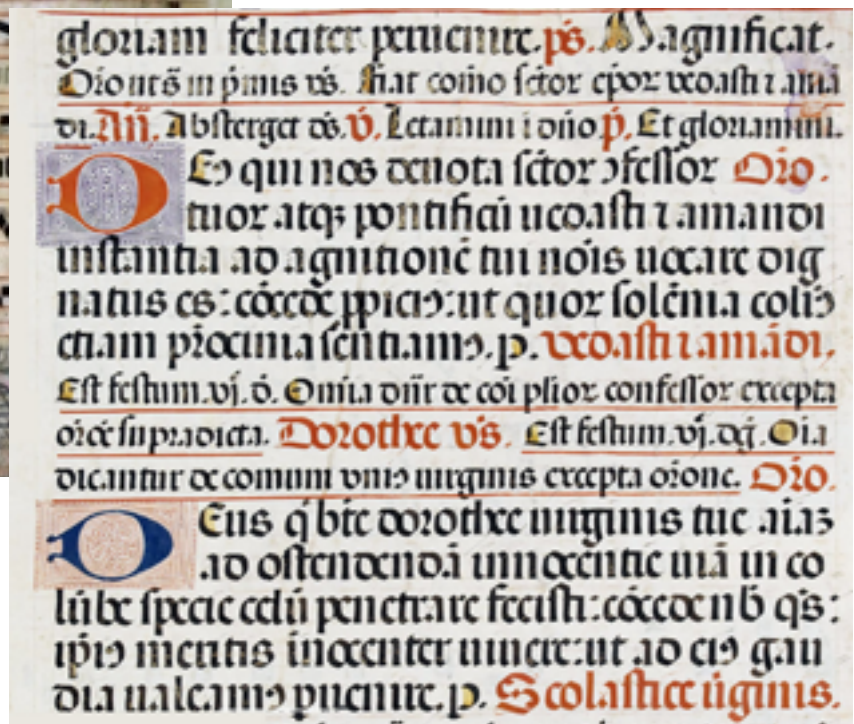 gloriam feliciter peruenire. ps. Magnificat.
Oro ut s̃ in p̃mis vs. fiat com̃o sc̃tor ep̃or vedasti ⁊ amã
di. Añ. Absterget ds. ṽ. Letamini i dño p̃. Et gloriamini.
DEꝰ qui nos deuota sc̃tor ꝯfessor Oro.
tuor atqꝫ pontificũ uedasti ⁊ amandi
instantia ad agnitionẽ tui nõis uocare dig
natus es: cõcede ꝓpiciꝰ: ut quor solẽnia colimꝰ
etiam p̃sentiamꝰ. p. vedasti ⁊ amãdi.
Est festum .vj. d̃. Omia dñr de coi pl̃ior confessor excepta
orõe supradicta. Dorothee v̾s. Est festum .vj. dg̃. Oĩa
dicantur de comuni vniꝰ uirginis excepta orone. Oro.
DEus q̃ bt̃e dorothee uirginis tue aĩaꝫ
ad ostendendã innocentie uiã in co
lũbe specie celũ penetrare fecisti: cõcede nb̃ q̃s:
ip̃iꝰ meritis inocenter uiuere: ut ad eiꝰ gau
dia ualeamꝰ puenire. p. Scolastice ũginis.